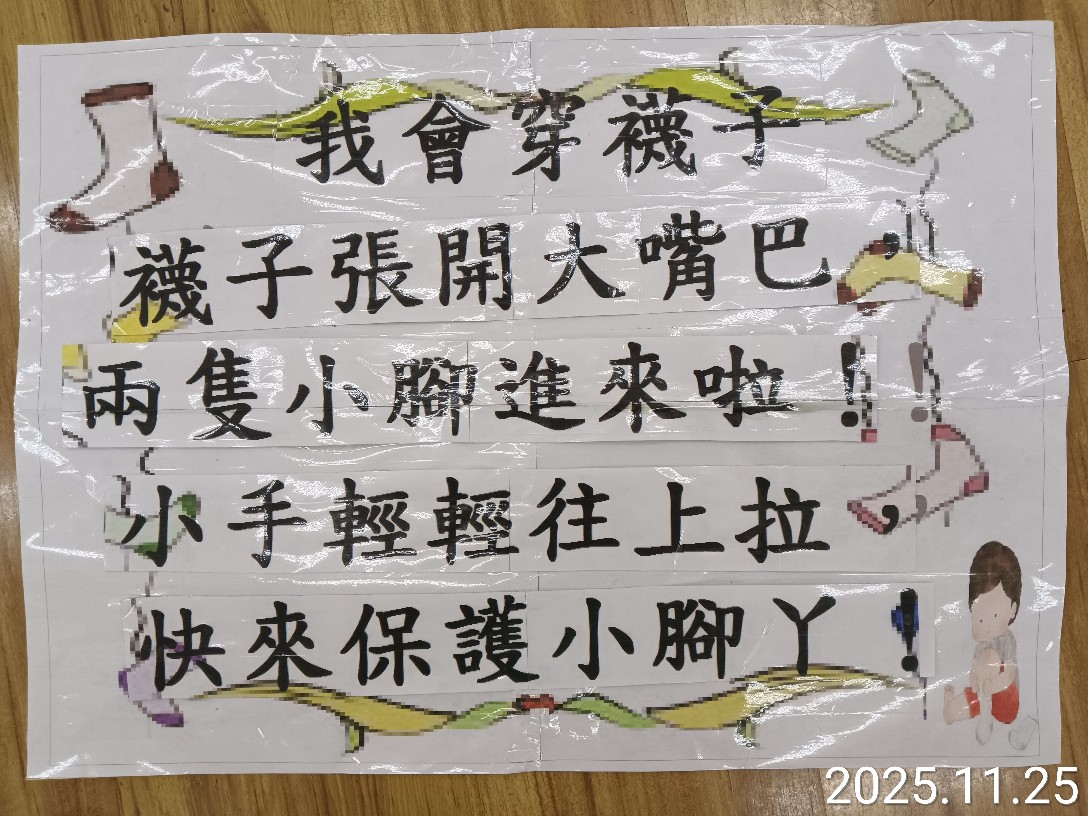 我會穿襪子
襪子張開大嘴巴，
兩隻小腳進來啦！
小手輕輕往上拉，
快來保護小腳丫！
2025.11.25